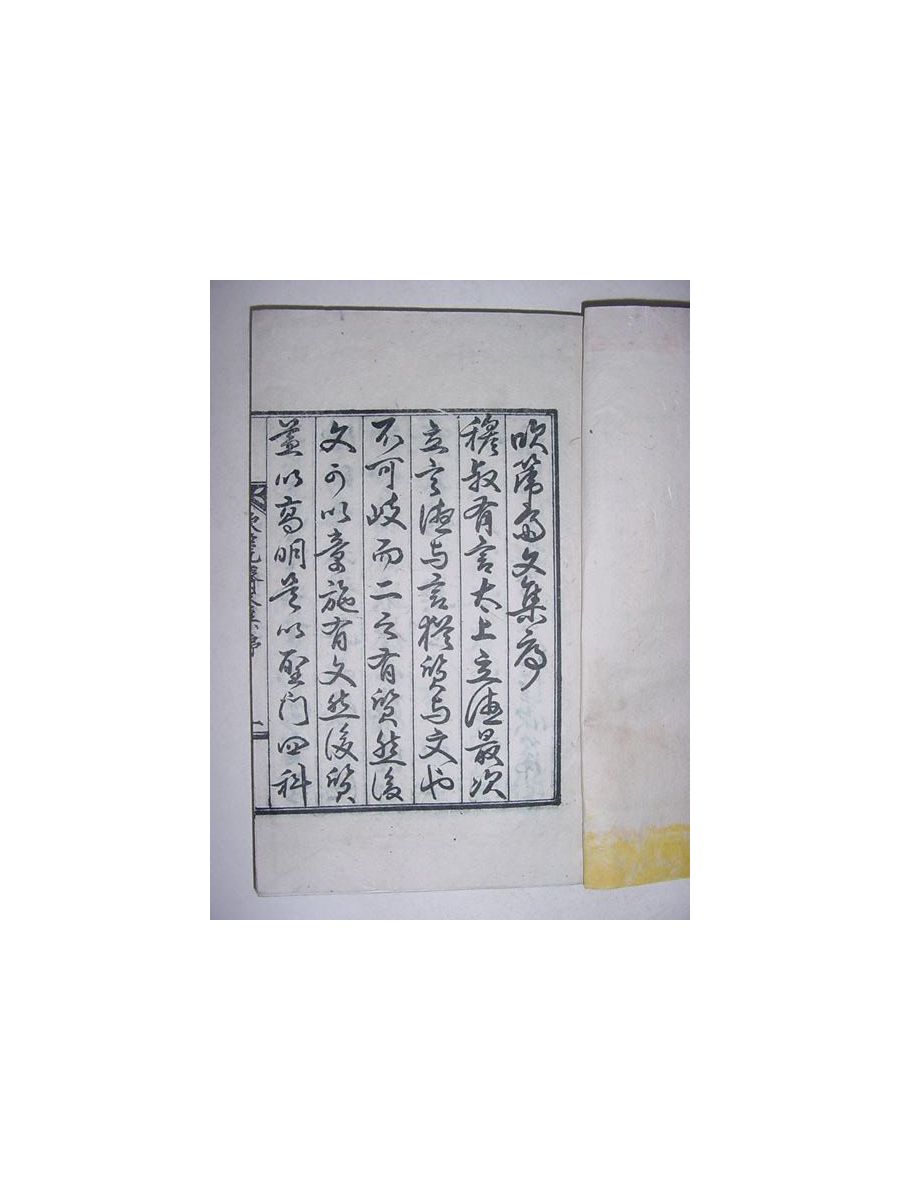 吹篪文集序
穆叔有言太上立德最次
立言德与言猶質与文也
不可岐而二之有質然後
文可以章施有文然後質
益以高明是以聖门四科